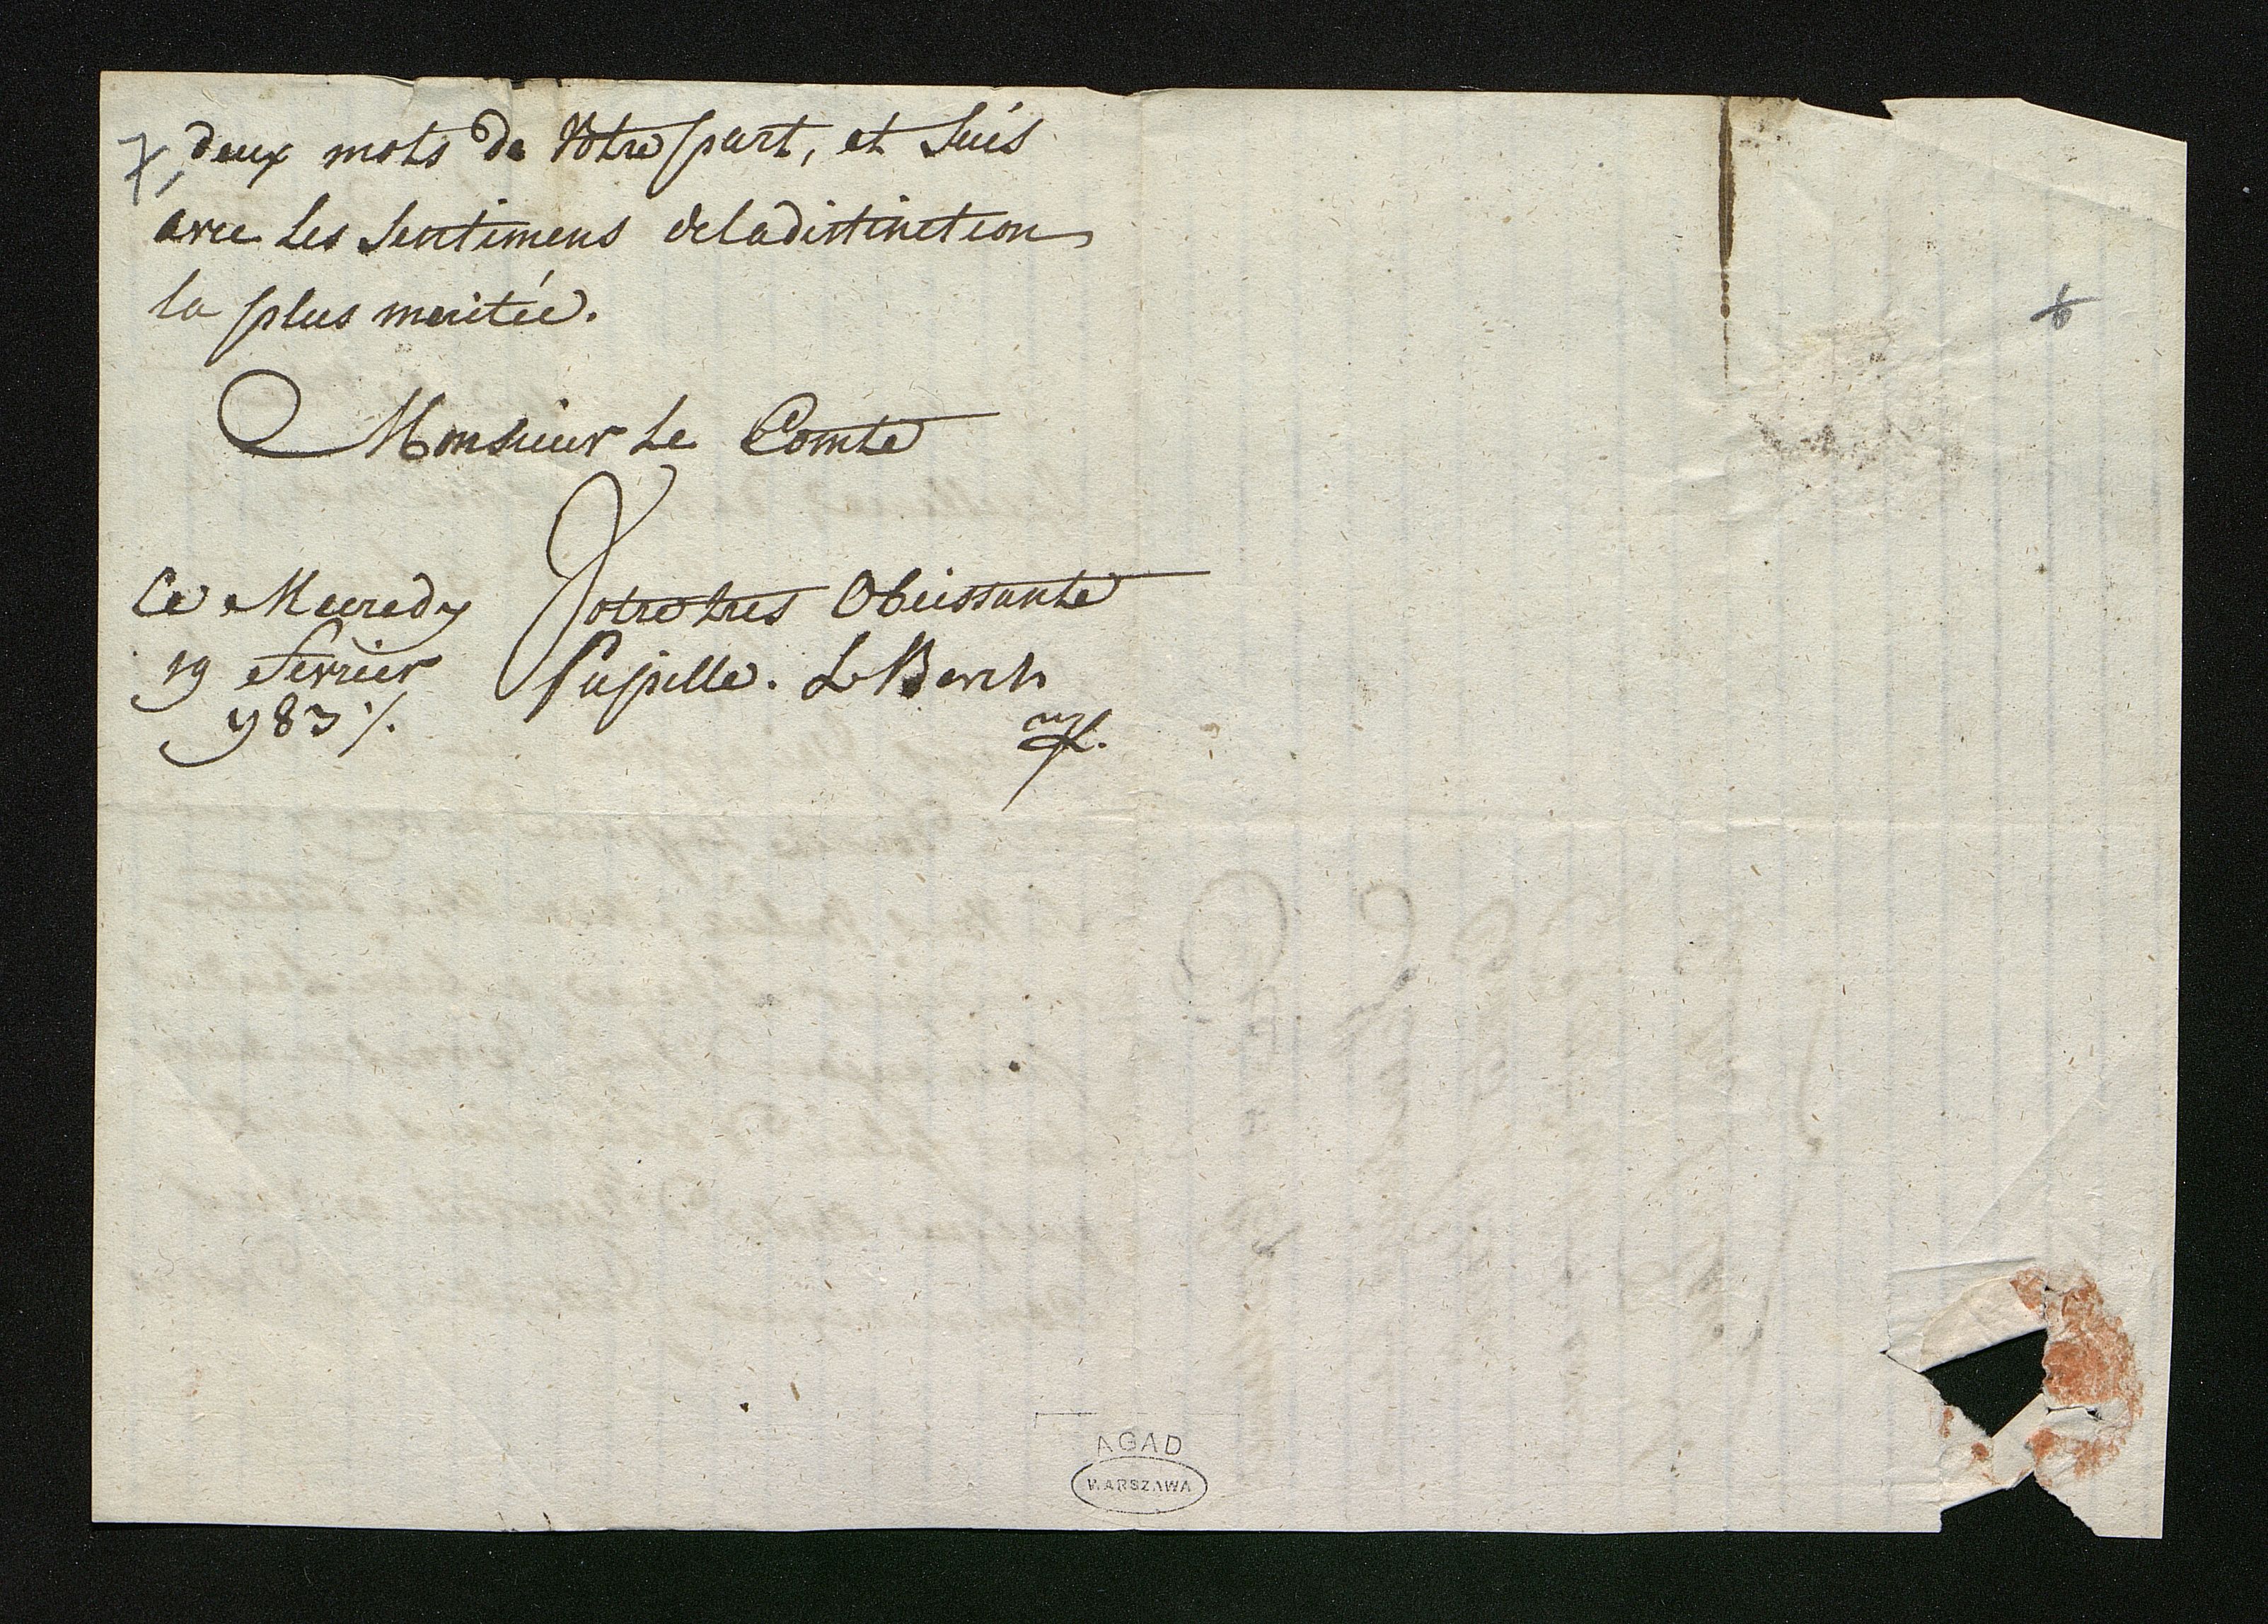 7,
deux mots de Votre part, et suis
avec les sentimens de la distinction
la plus meritée.
Monsieur le Comte
Votre tres Obeissante
Pupille. L Berch
Ce Mecredy
19 fevrier
983 %.
6
AGAD
WARSZAWA